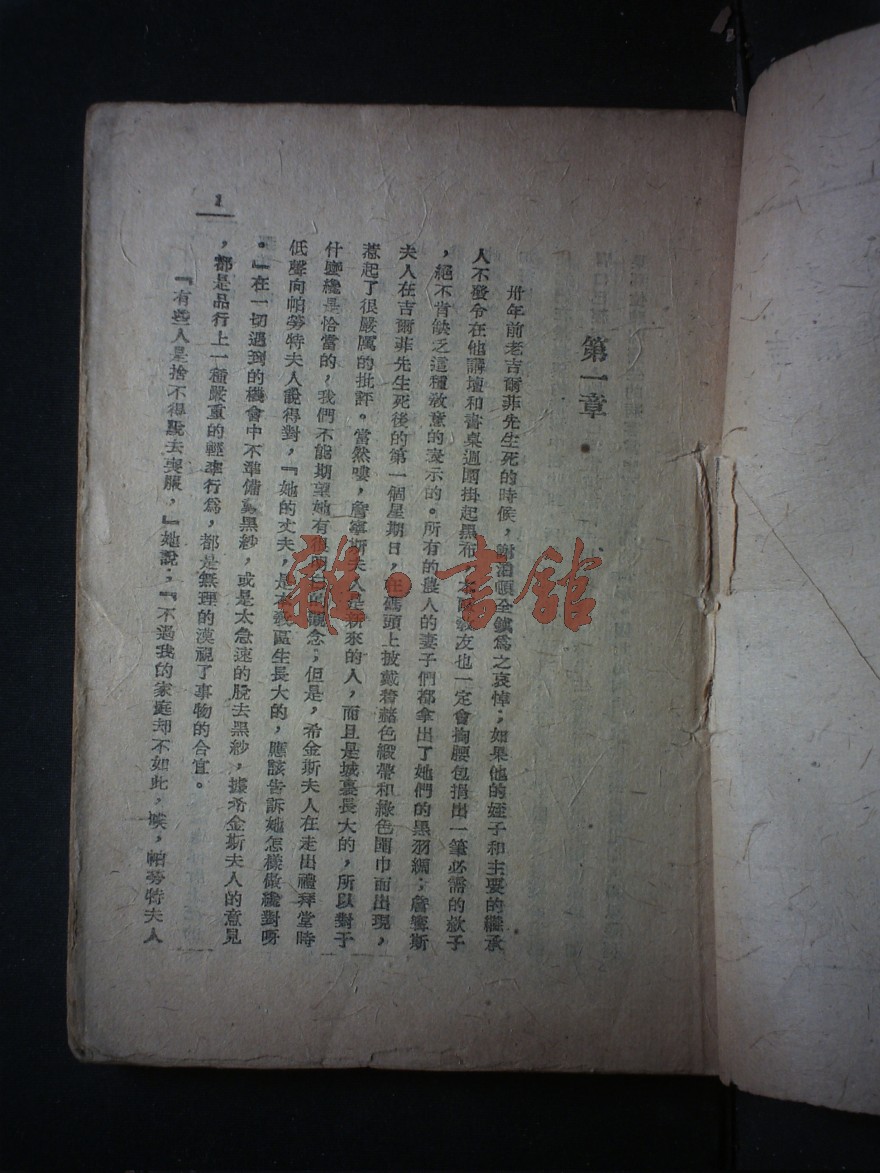 1
第一章
卅年前老吉爾菲先生死的時候，謝潑頓全鎮爲之哀悼；如果他的姪子和主要的繼承
人不發令在他講壇和書桌週圍掛起黑布，本區教友也一定會掏腰包捐出一筆必需的款子
，絕不肯缺乏這種敬意的表示的。所有的農人的妻子們都拿出了她們的黑羽綢；詹寧斯
夫人在吉爾菲先生死後的第一個星期日，在碼頭上披戴着赭色緞帶和綠色圍巾而出現，
惹起了很嚴厲的批評。當然嘍，詹寧斯夫人是新來的人，而且是城裏長大的，所以對于
什麼纔是恰當的，我們不能期望她有很明白的觀念；但是，希金斯夫人在走出禮拜堂時
低聲向帕勞特夫人說得對，『她的丈夫，是本教區生長大的，應該告訴她怎樣做纔對呀
。』在一切遇到的機會中不準備戴黑紗，或是太急速的脫去黑紗，據希金斯夫人的意見
，都是品行上一種嚴重的輕率行爲，都是無理的漠視了事物的合宜。
『有些人是捨不得脫去喪服，』她說；『不過我的家庭却不如此，唉，帕勞特夫人
雜·書館